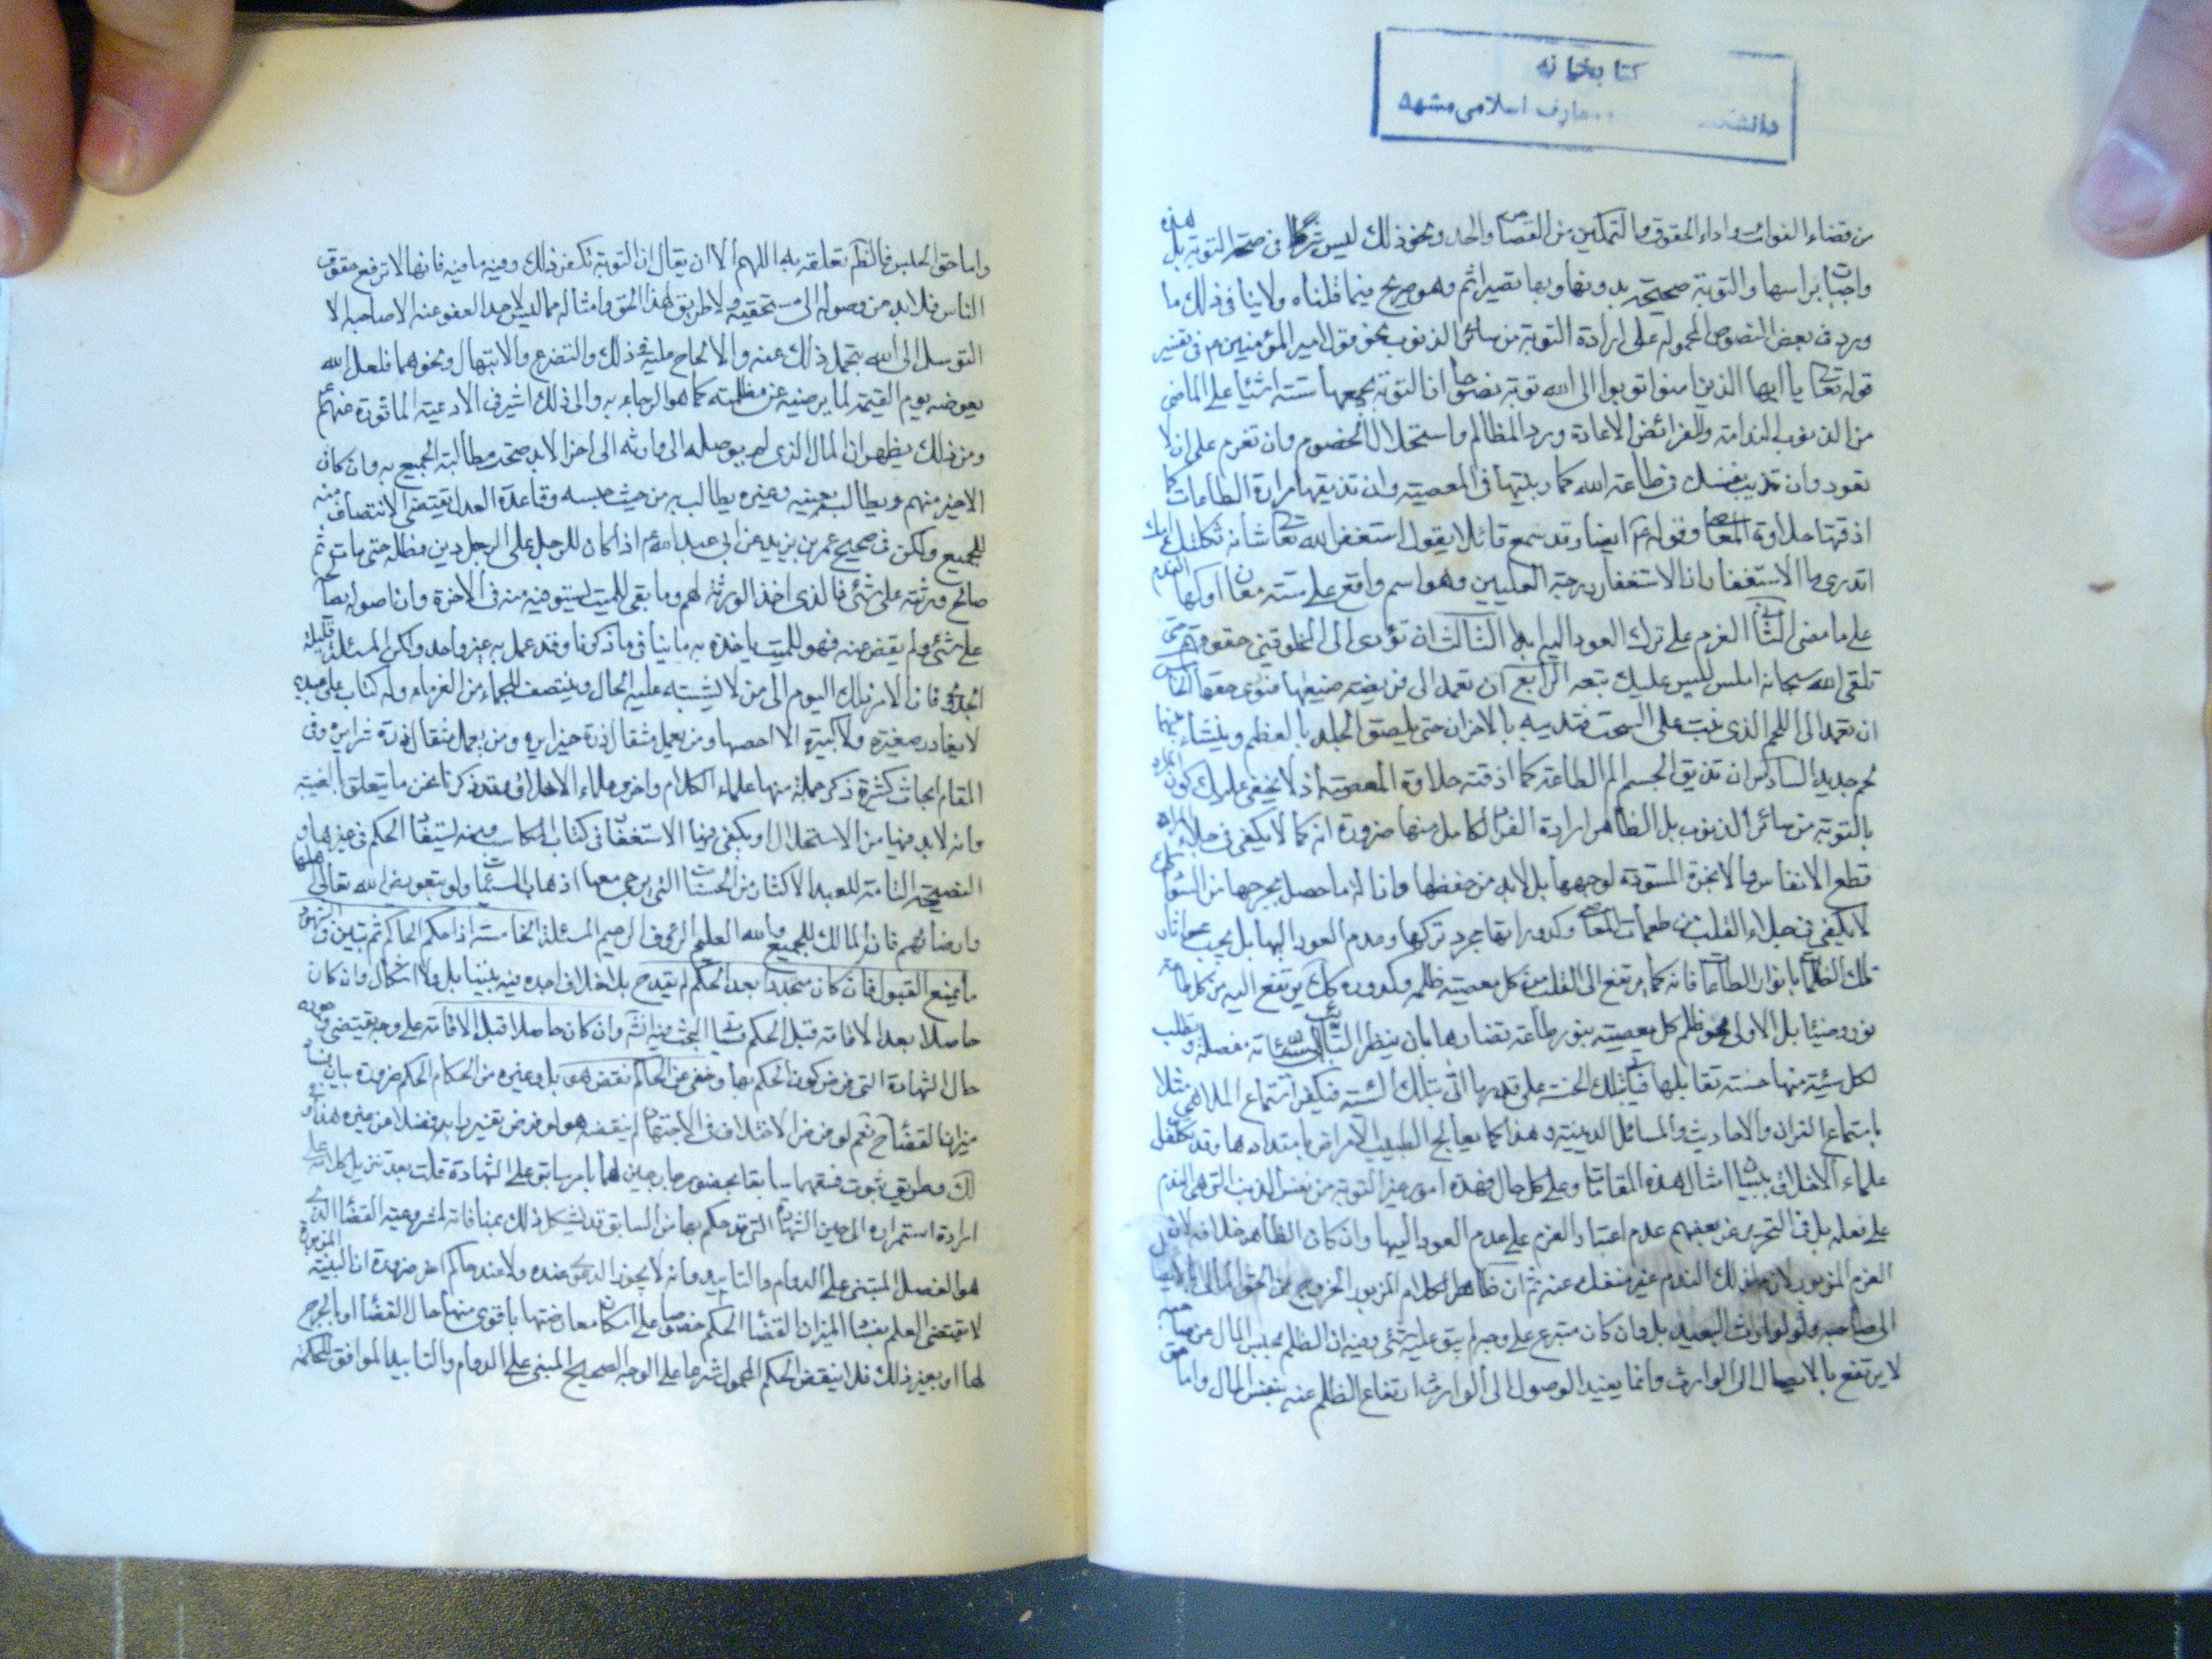 كتابخانه
دانشكده معارف اسلامى مشهد
من قضاء الفوائت واداء الحقوق والتمكين من القصاص والحد ونحو ذلك ليس شرطا فى صحة التوبة بل هذه
واجبات براسها والتوبة صحيحة بدونها وبها تصير اتم وهو صريح فيما قلناه ولا ينافى ذلك ما
ورد فى بعض النصوص المحمولة على ارادة التوبة من سائر الذنوب نحو قول امير المؤمنين ع فى تفسير
قوله تعالى يا ايها الذين امنوا توبوا الى الله توبة نصوحا ان التوبة يجمعها ستة اشياء على الماضى
من الذنوب الندامة وللفرائض الاعادة ورد المظالم واستحلال الخصوم وان تعزم على ان لا
تعود وان تذيب نفسك فى طاعة الله كما ربيتها فى المعصية وان تذيقها مرارة الطاعات كما
اذقتها حلاوة المعاصى وقوله ع ايضا وقد سمع قائلا يقول استغفر الله تعالى شانه ثكلتك امك
اتدرى ما الاستغفار ان الاستغفار درجة العليين وهو اسم واقع على ستة معان اولها الندم
على ما مضى الثانى العزم على ترك العود اليه ابدا الثالث ان تؤدى الى المخلوقين حقوقهم حتى
تلقى الله سبحانه املس ليس عليك تبعة الرابع ان تعمد الى فريضة ضيعتها فتؤدى حقها الخامس
ان تعمد الى اللحم الذى نبت على السحت فتذيبه بالاحزان حتى يلصق الجلد بالعظم وينشاء بينهما
لحم جديد السادس ان تذيق الجسم الم الطاعة كما اذقته حلاوة المعصية اذ لا يخفى عليك كون المراد
بالتوبة من سائر الذنوب بل الظاهر ارادة الفرد الكامل منها ضرورة انه كما لا يكفى فى جلاء المراة
قطع الانفاس والابخرة المسودة لوجهها بل لابد من صقلها وازالة ما حصل بجرمها من السواد كك
لا يكفى فى جلاء القلب من ظلمات المعاصى وكدوراتها مجرد تركها وعدم العود اليها بل يجب محو اثار
تلك الظلمات بانوار الطاعات فانه كما يرتفع الى القلب من كل معصية ظلمة وكدورة كك يرتفع اليه من كل طاعة
نور وضياء بل الاولى محو ظلمة كل معصية بنور طاعة تضادها بان ينظر التائب الى سيئاته مفصلة ويطلب
لكل سيئة منها حسنة تقابلها فياتى بتلك الحسنة على قدر ما اتى بتلك السيئة فيكفر استماع الملاهى مثلا
باستماع القران والاحاديث والمسائل الدينية وهذا كما يعالج الطبيب الامراض باضدادها وقد تكفل
علماء الاخلاق ببيان امثال هذه المقامات وعلى كل حال فهذه امور غير التوبة من نفس الذنب التى هى الندم
على فعله بل فى التحرير عن بعضهم عدم اعتبار العزم على عدم العود اليها وان كان الظاهر خلافه لان
العزم المزبور لازم لذلك الندم غير منفك عنه ثم ان ظاهر الكلام المزبور الخروج من الحق المالى بالايصال
الى صاحبه ولو لوارث البعيد بل وان كان متبرع على وجه لم يبق عليه شئ وفيه ان الظلم بحبس المال عن صاحبه
لا يرتفع بالايصال الى الوارث وانما يفيد الوصول الى الوارث ارتفاع الظلم عنه بنفس المال واما حق
واما حق الحبس فالظاهر تعلقه به اللهم الا ان يقال ان التوبة تكفر ذلك وفيه ما فيه فانها لا ترفع حقوق
الناس فلابد من وصوله الى مستحقيه ولا طريق لهذا الحق وامثاله مما ليس لاحد العفو عنه الا صاحبه الا
التوسل الى الله بتحمل ذلك عنه والالحاح عليه فى ذلك والتضرع والابتهال ونحوهما فلعل الله
يعوضه يوم القيمة لما يرضيه عن مظلمته كما هو الرجاء به والى ذلك اشير فى الادعية الماثورة عنهم ع
ومن ذلك يظهر ان المال الذى لم يوصله الى وارثه الى اخر الابد صحت مطالبة الجميع به وان كان
الاخير منهم ويطالب بعينه وغيره يطالب به من حيث حبسه وقاعدة العدل تقتضى الانتصاف منه
للجميع ولكن فى صحيح عمر بن يزيد عن ابى عبد الله ع اذا كان للرجل على الرجل دين فمطله حتى مات ثم
صالح ورثته على شئ فالذى اخذ الورثة لهم وما بقى للميت يستوفيه منه فى الاخرة وان لم يصالحهم
على شئ ولم يقض عنه فهو للميت ياخذه به ما ينافى ما ذكرنا وقد عمل به غير واحد ولكن المسئلة قليلة
الجدوى فان الامر ذلك اليوم الى من لا يشتبه عليه الحال وينتصف للجماء من القرناء وله كتاب على عبيده
لا يغادر صغيرة ولا كبيرة الا احصيها ومن يعمل مثقال ذرة خيرا يره ومن يعمل مثقال ذرة شرا يره وفى
المقام ابحاث كثيرة ذكر جملة منها علماء الكلام واخرى علماء الاخلاق وقد ذكرنا نحن ما يتعلق بالغيبة
وانه لابد فيها من الاستحلال او يكفى فيها الاستغفار فى كتاب المكاسب ومنه يستفاد الحكم فى غيرها و
النصيحة التامة للعبد الاكثار من الحسنات التى يرجى معها اذهاب السيئات ولو بتعويض الله تعالى اهلها
وارضائهم فان المالك للجميع والله العليم الرؤف الرحيم المسئلة الخامسة اذا حكم الحاكم ثم تبين فى الشهود
ما يمنع القبول فان كان متجددا بعد الحكم لم يقدح بلا خلاف اجده فيه بيننا بل ولا اشكال وان كان
حاصلا بعد الاقامة قبل الحكم فسياتى البحث فيه انشاء وان كان حاصلا قبل الاقامة على وجه يقتضى فسق
حال الشهادة التى فرض كون الحكم بها وخفى عن الحاكم نقض هو بل وغيره من الحكام الحكم ضرورة بيان فساد
ميزان القضاء ح نعم لو فرض الاختلاف فى الاجتهاد لم ينقضه هو لو فرض تغير رايه فضلا عن غيره هذا
وطريق ثبوت فسقهما سابقا بحضور جارحين لهما بامر سابق على الشهادة قلت بعد تنزيل كلامه على
ارادة استمراره الى حين الشهادة التى قد حكم بها من السابق قد يشكل ذلك بمنافاته لمشروعية القضاء الذى
هو الفصل المبتنى على الدوام والتابيد وانه لا يجوز الدعوى عنده ولا عند حاكم اخر ضرورة ان البينة المزبورة
لا تقتضى العلم بفساد ميزان القضاء الحكم خصوصا على امكان معارضتها باقوى منها حال القضاء او بالجرح
لها او بغير ذلك فلا ينقض الحكم المحمول شرعا على الوجه الصحيح المبنى على الدوام والتابيد الموافق للحكمة